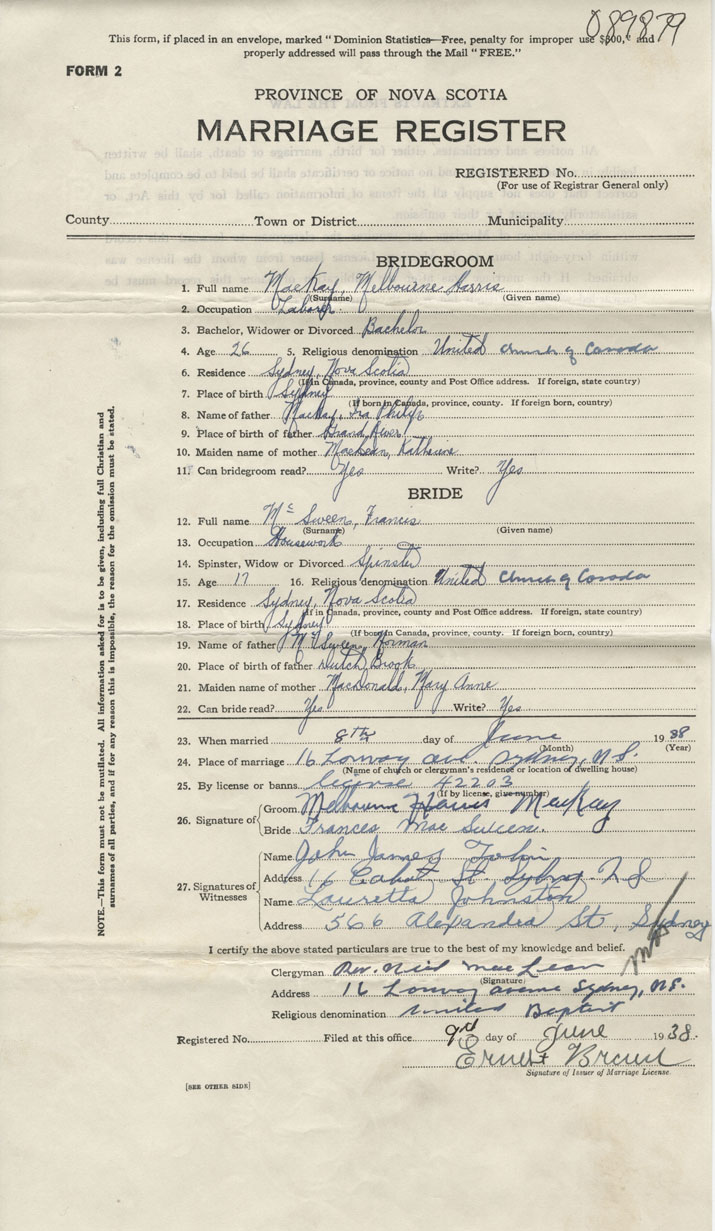 089879
This form, if placed in an envelope, marked "Dominion Statistics—Free, penalty for improper use $300," and
properly addressed will pass through the Mail "FREE."
FORM 2
PROVINCE OF NOVA SCOTIA
MARRIAGE REGISTER
REGISTERED No.
(For use of Registrar General only)
County Town or District Municipality
BRIDEGROOM
1. Full name MacKay, Melbourne Harris
(Surname) (Given name)
2. Occupation Laborer.
3. Bachelor, Widower or Divorced Bachelor
4. Age 26 5. Religious denomination United Church of Canada
6. Residence Sydney, Nova Scotia
(If in Canada, province, county and Post Office address. If foreign, state country)
7. Place of birth Sydney
(If born in Canada, province, county. If foreign born, country)
8. Name of father MacKay, Ira Philip
9. Place of birth of father River
10. Maiden name of mother Katherine
11. Can bridegroom read? Yes Write? Yes
BRIDE
12. Full name Mc Sween, Francis
(Surname) (Given name)
13. Occupation Housework
14. Spinster, Widow or Divorced Spinster
15. Age 17 16. Religious denomination United Church of Canada
17. Residence Sydney, Nova Scotia
(If in Canada, province, county and Post Office address. If foreign, state country)
18. Place of birth Sydney
(If born in Canada, province, county. If foreign born, country)
19. Name of father McSween, Norman
20. Place of birth of father Dutch Brook
21. Maiden name of mother MacDonald, Mary Anne
22. Can bride read? Yes Write? Yes
23. When married 8th day of June 1938
(Month) (Year)
24. Place of marriage 16 Lorway ave Sydney, N.S.
(Name of church or clergyman's residence or location of dwelling house)
25. By license or banns license 42203
(If by license, give number)
26. Signature of Groom Melbourne Harris MacKay
Bride Frances Mac Sween.
27. Signatures of Witnesses Name John James Tobin
Address 16 Cabot St. Sydney N S
Name Lauretta Johnston
Address 566 Alexandra St, Sydney
I certify the above stated particulars are true to the best of my knowledge and belief.
Clergyman Rev. Neil Mac Lean
(Signature)
Address 16 Lorway avenue Sydney, N.S.
Religious denomination United Baptist
Registered No. Filed at this office 9rd day of June 1938.
Ernest Brown
Signature of Issuer of Marriage License
[SEE OTHER SIDE]
NOTE.—This form must not be mutilated. All information asked for is to be given, including full Christian and
surnames of all parties, and if for any reason this is impossible, the reason for the omission must be stated.